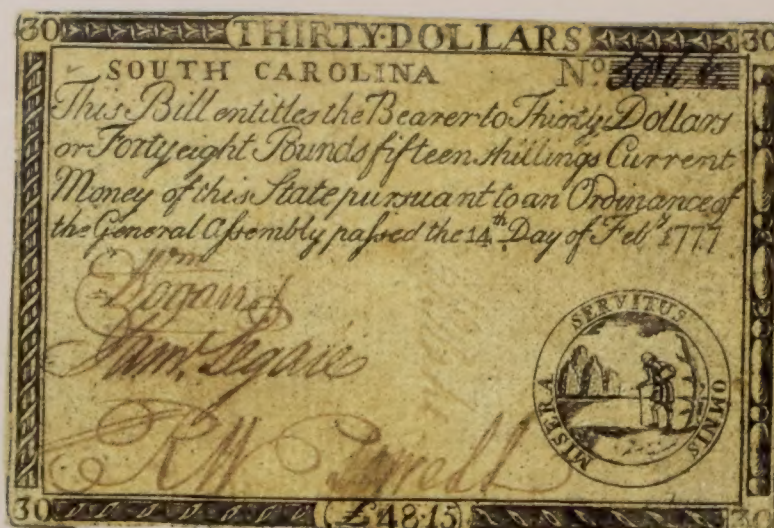 30 THIRTY·DOLLARS 30
SOUTH CAROLINA Nº
This Bill entitles the Bearer to Thirty Dollars
or Forty eight Pounds fifteen shillings Current
Money of this State pursuant to an Ordinance of
the General Assembly passed the 14th Day of Feby 1777
Wm
Logan
Saml Legare
R W Powell
MISERA SERVITUS OMNIS
30 £48·15 30